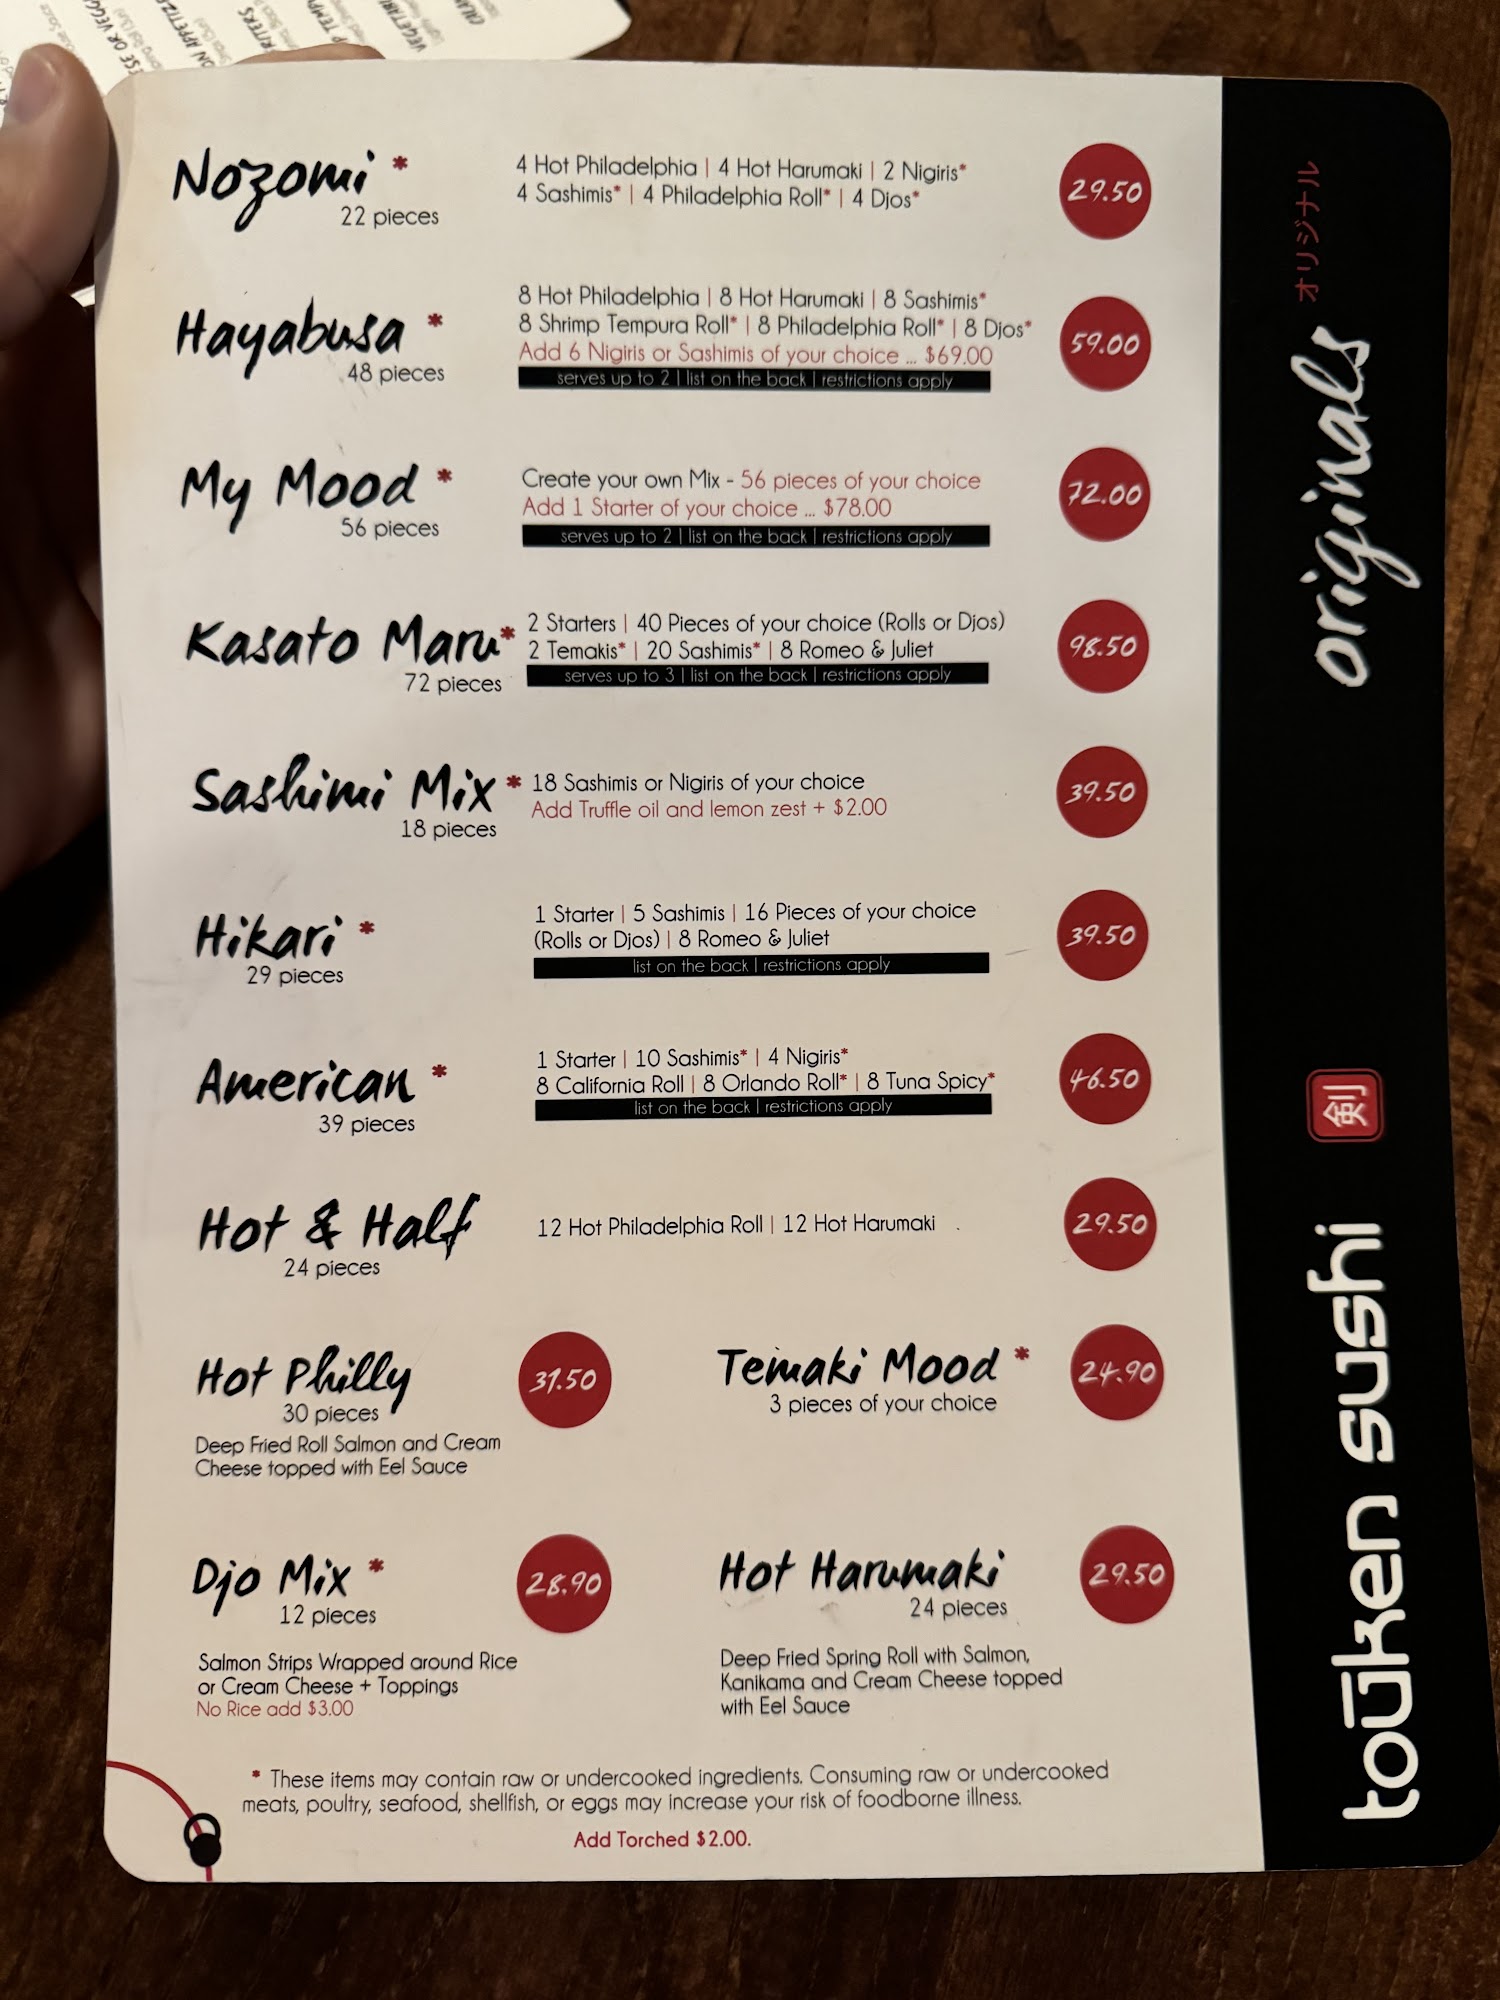 Nozomi *
22 pieces
4 Hot Philadelphia | 4 Hot Harumaki | 2 Nigiris*
4 Sashimis* | 4 Philadelphia Roll* | 4 Djos*
29.50
Hayabusa *
48 pieces
8 Hot Philadelphia | 8 Hot Harumaki | 8 Sashimis*
8 Shrimp Tempura Roll* | 8 Philadelphia Roll* | 8 Djos*
Add 6 Nigiris or Sashimis of your choice ... $69.00
serves up to 2 | list on the back | restrictions apply
59.00
My Mood *
56 pieces
Create your own Mix - 56 pieces of your choice
Add 1 Starter of your choice ... $78.00
serves up to 2 | list on the back | restrictions apply
72.00
Kasato Maru*
72 pieces
2 Starters | 40 Pieces of your choice (Rolls or Djos)
2 Temakis* | 20 Sashimis* | 8 Romeo & Juliet
serves up to 3 | list on the back | restrictions apply
98.50
Sashimi Mix *
18 pieces
18 Sashimis or Nigiris of your choice
Add Truffle oil and lemon zest + $2.00
39.50
Hikari *
29 pieces
1 Starter | 5 Sashimis | 16 Pieces of your choice
(Rolls or Djos) | 8 Romeo & Juliet
list on the back | restrictions apply
39.50
American *
39 pieces
1 Starter | 10 Sashimis* | 4 Nigiris*
8 California Roll | 8 Orlando Roll* | 8 Tuna Spicy*
list on the back | restrictions apply
46.50
Hot & Half
24 pieces
12 Hot Philadelphia Roll | 12 Hot Harumaki
29.50
Hot Philly
30 pieces
Deep Fried Roll Salmon and Cream
Cheese topped with Eel Sauce
31.50
Temaki Mood *
3 pieces of your choice
24.90
Djo Mix *
12 pieces
Salmon Strips Wrapped around Rice
or Cream Cheese + Toppings
No Rice add $3.00
28.90
Hot Harumaki
24 pieces
Deep Fried Spring Roll with Salmon,
Kanikama and Cream Cheese topped
with Eel Sauce
29.50
* These items may contain raw or undercooked ingredients. Consuming raw or undercooked
meats, poultry, seafood, shellfish, or eggs may increase your risk of foodborne illness.
Add Torched $2.00.
オリジナル
originals
剣
touken sushi